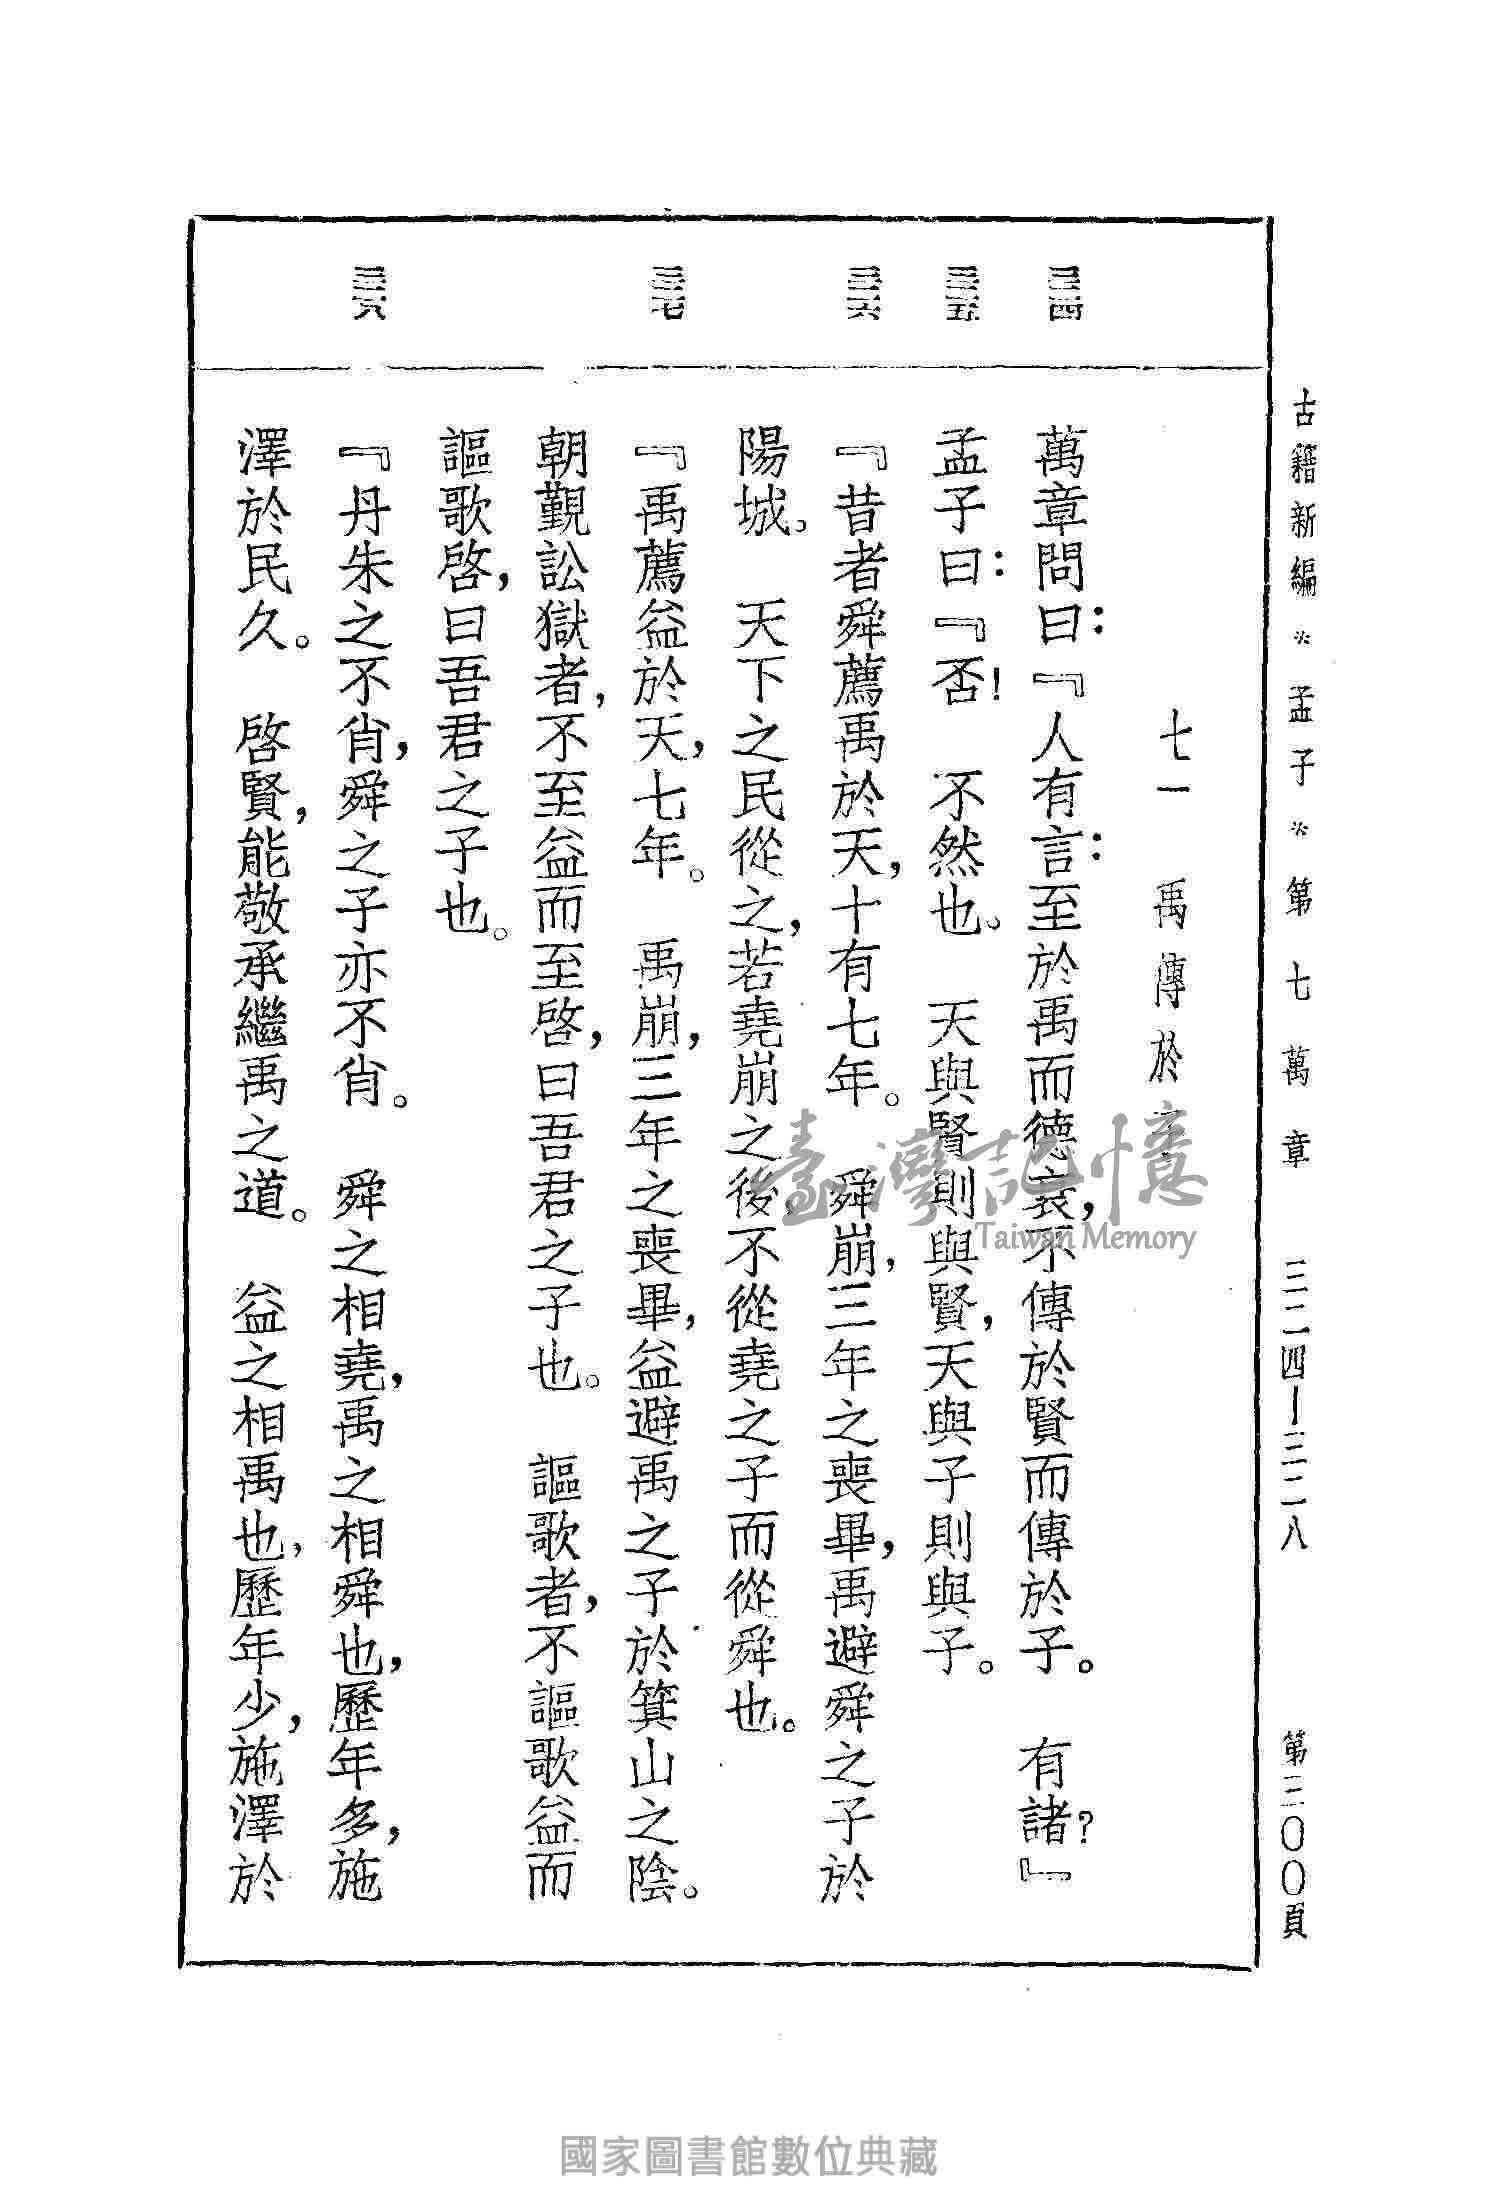 古籍新編※孟子※第七萬章 三二四—三二八 第三〇〇頁
七一 禹傳於子
三二四
萬章問曰:『人有言:至於禹而德衰,不傳於賢而傳於子。 有諸?』
三二五
孟子曰:『否! 不然也。 天與賢則與賢,天與子則與子。
三二六
『昔者舜薦禹於天,十有七年。 舜崩,三年之喪畢,禹避舜之子於
陽城。 天下之民從之,若堯崩之後,不從堯之子而從舜也。
三二七
『禹薦益於天,七年。 禹崩,三年之喪畢,益避禹之子於箕山之陰。
朝覲訟獄者,不至益而至啓,曰吾君之子也。 謳歌者,不謳歌益而
謳歌啓,曰吾君之子也。
三二八
『丹朱之不肖,舜之子亦不肖。 舜之相堯,禹之相舜也,歷年多,施
澤於民久。 啓賢,能敬承繼禹之道。 益之相禹也,歷年少,施澤於
臺灣記憶
Taiwan Memory
國家圖書館數位典藏